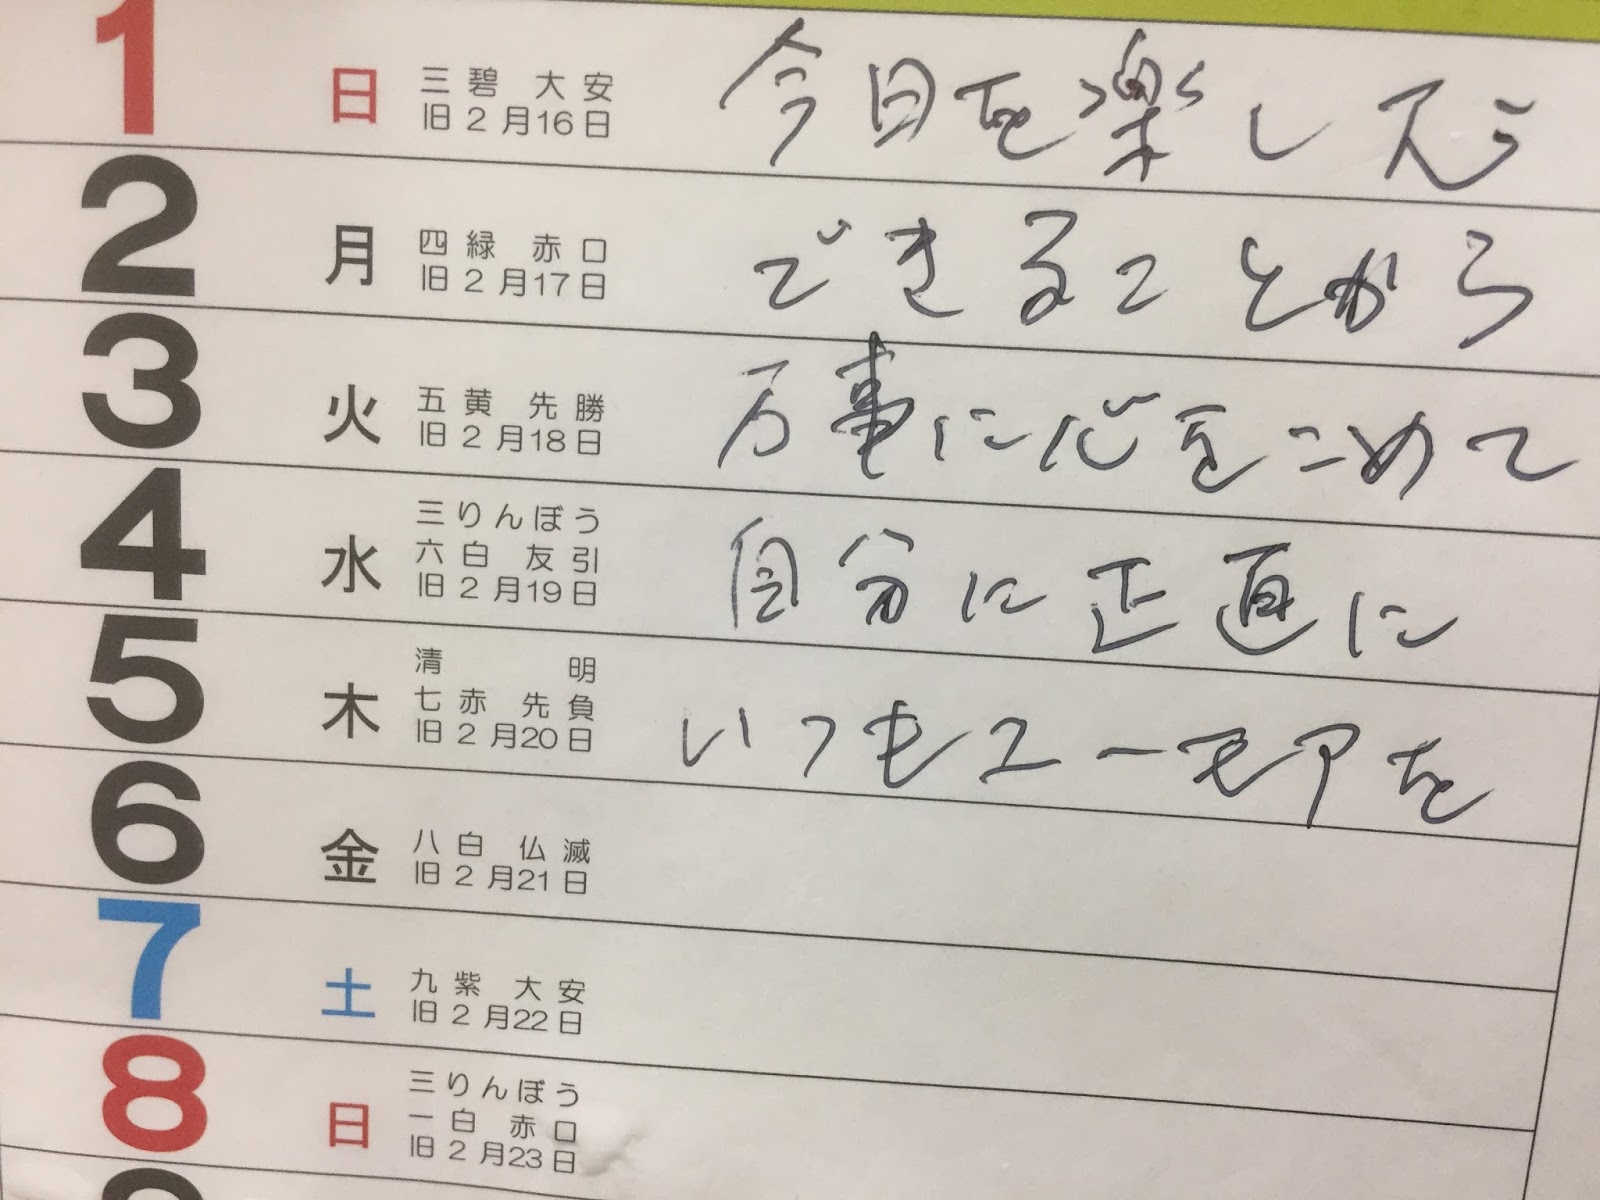 1 日 三碧 大安 今日を楽しもう
旧2月16日
2 月 四緑 赤口 できることから
旧2月17日
3 火 五黄 先勝 万事に心をこめて
旧2月18日
4 水 三りんぼう 自分に正直に
六白 友引
旧2月19日
5 木 清明 いつもユーモアを
七赤 先負
旧2月20日
6 金 八白 仏滅
旧2月21日
7 土 九紫 大安
旧2月22日
8 日 三りんぼう
一白 赤口
旧2月23日